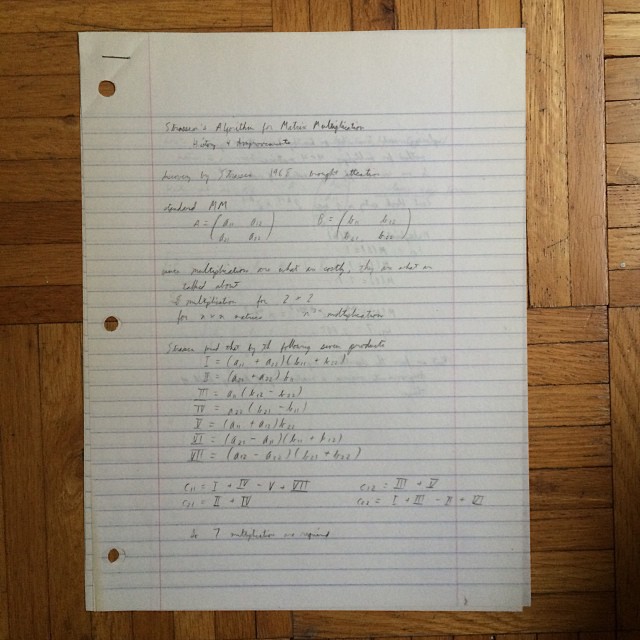 Strassen's Algorithm for Matrix Multiplication
History & Improvements
by Strassen 1968 brought attention
standard MM
A = (a₁₁ a₁₂ B = (b₁₁ b₁₂
a₂₁ a₂₂) b₂₁ b₂₂)
multiplications are what are costly, they are what are
talked about
8 multiplication for 2 × 2
for n × n matrices n³ multiplication
Strassen found that by the following seven products
I = (a₁₁ + a₂₂)(b₁₁ + b₂₂)
II = (a₂₁ + a₂₂) b₁₁
III = a₁₁(b₁₂ - b₂₂)
IV = a₂₂(b₂₁ - b₁₁)
V = (a₁₁ + a₁₂) b₂₂
VI = (a₂₁ - a₁₁)(b₁₁ + b₁₂)
VII = (a₁₂ - a₂₂)(b₂₁ + b₂₂)
c₁₁ = I + IV - V + VII c₁₂ = III + V
c₂₁ = II + IV c₂₂ = I + III - II + VI
So 7 multiplication are required